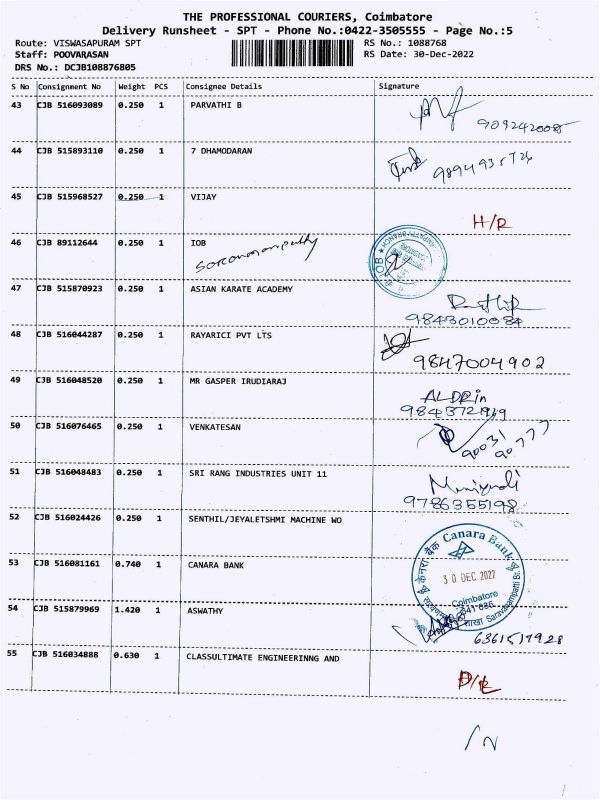 THE PROFESSIONAL COURIERS, Coimbatore
Delivery Runsheet - SPT - Phone No.:0422-3505555 - Page No.:5
Route: VISWASAPURAM SPT RS No.: 1088768
Staff: POOVARASAN RS Date: 30-Dec-2022
DRS No.: DCJB108876805
S No Consignment No Weight PCS Consignee Details Signature
43 CJB 516093089 0.250 1 PARVATHI B
9092420008
44 CJB 515893110 0.250 1 7 DHAMODARAN
9894935726
45 CJB 515968527 0.250 1 VIJAY
H/R
46 CJB 89112644 0.250 1 IOB
Saravanampatty
47 CJB 515870923 0.250 1 ASIAN KARATE ACADEMY
9843010084
48 CJB 516044287 0.250 1 RAYARICI PVT LTS
9847004902
49 CJB 516048520 0.250 1 MR GASPER IRUDIARAJ
ALDRIN
50 CJB 516076465 0.250 1 VENKATESAN
90031
90777
51 CJB 516048483 0.250 1 SRI RANG INDUSTRIES UNIT 11
9786355198
52 CJB 516024426 0.250 1 SENTHIL/JEYALETSHMI MACHINE WO
53 CJB 516081161 0.740 1 CANARA BANK
केनरा बैंक Canara Bank
30 DEC 2022
Coimbatore
641 035
शाखा Saravanampatti Br.
54 CJB 515879969 1.420 1 ASWATHY
6361517928
55 CJB 516034888 0.630 1 CLASSULTIMATE ENGINEERINNG AND
D/L